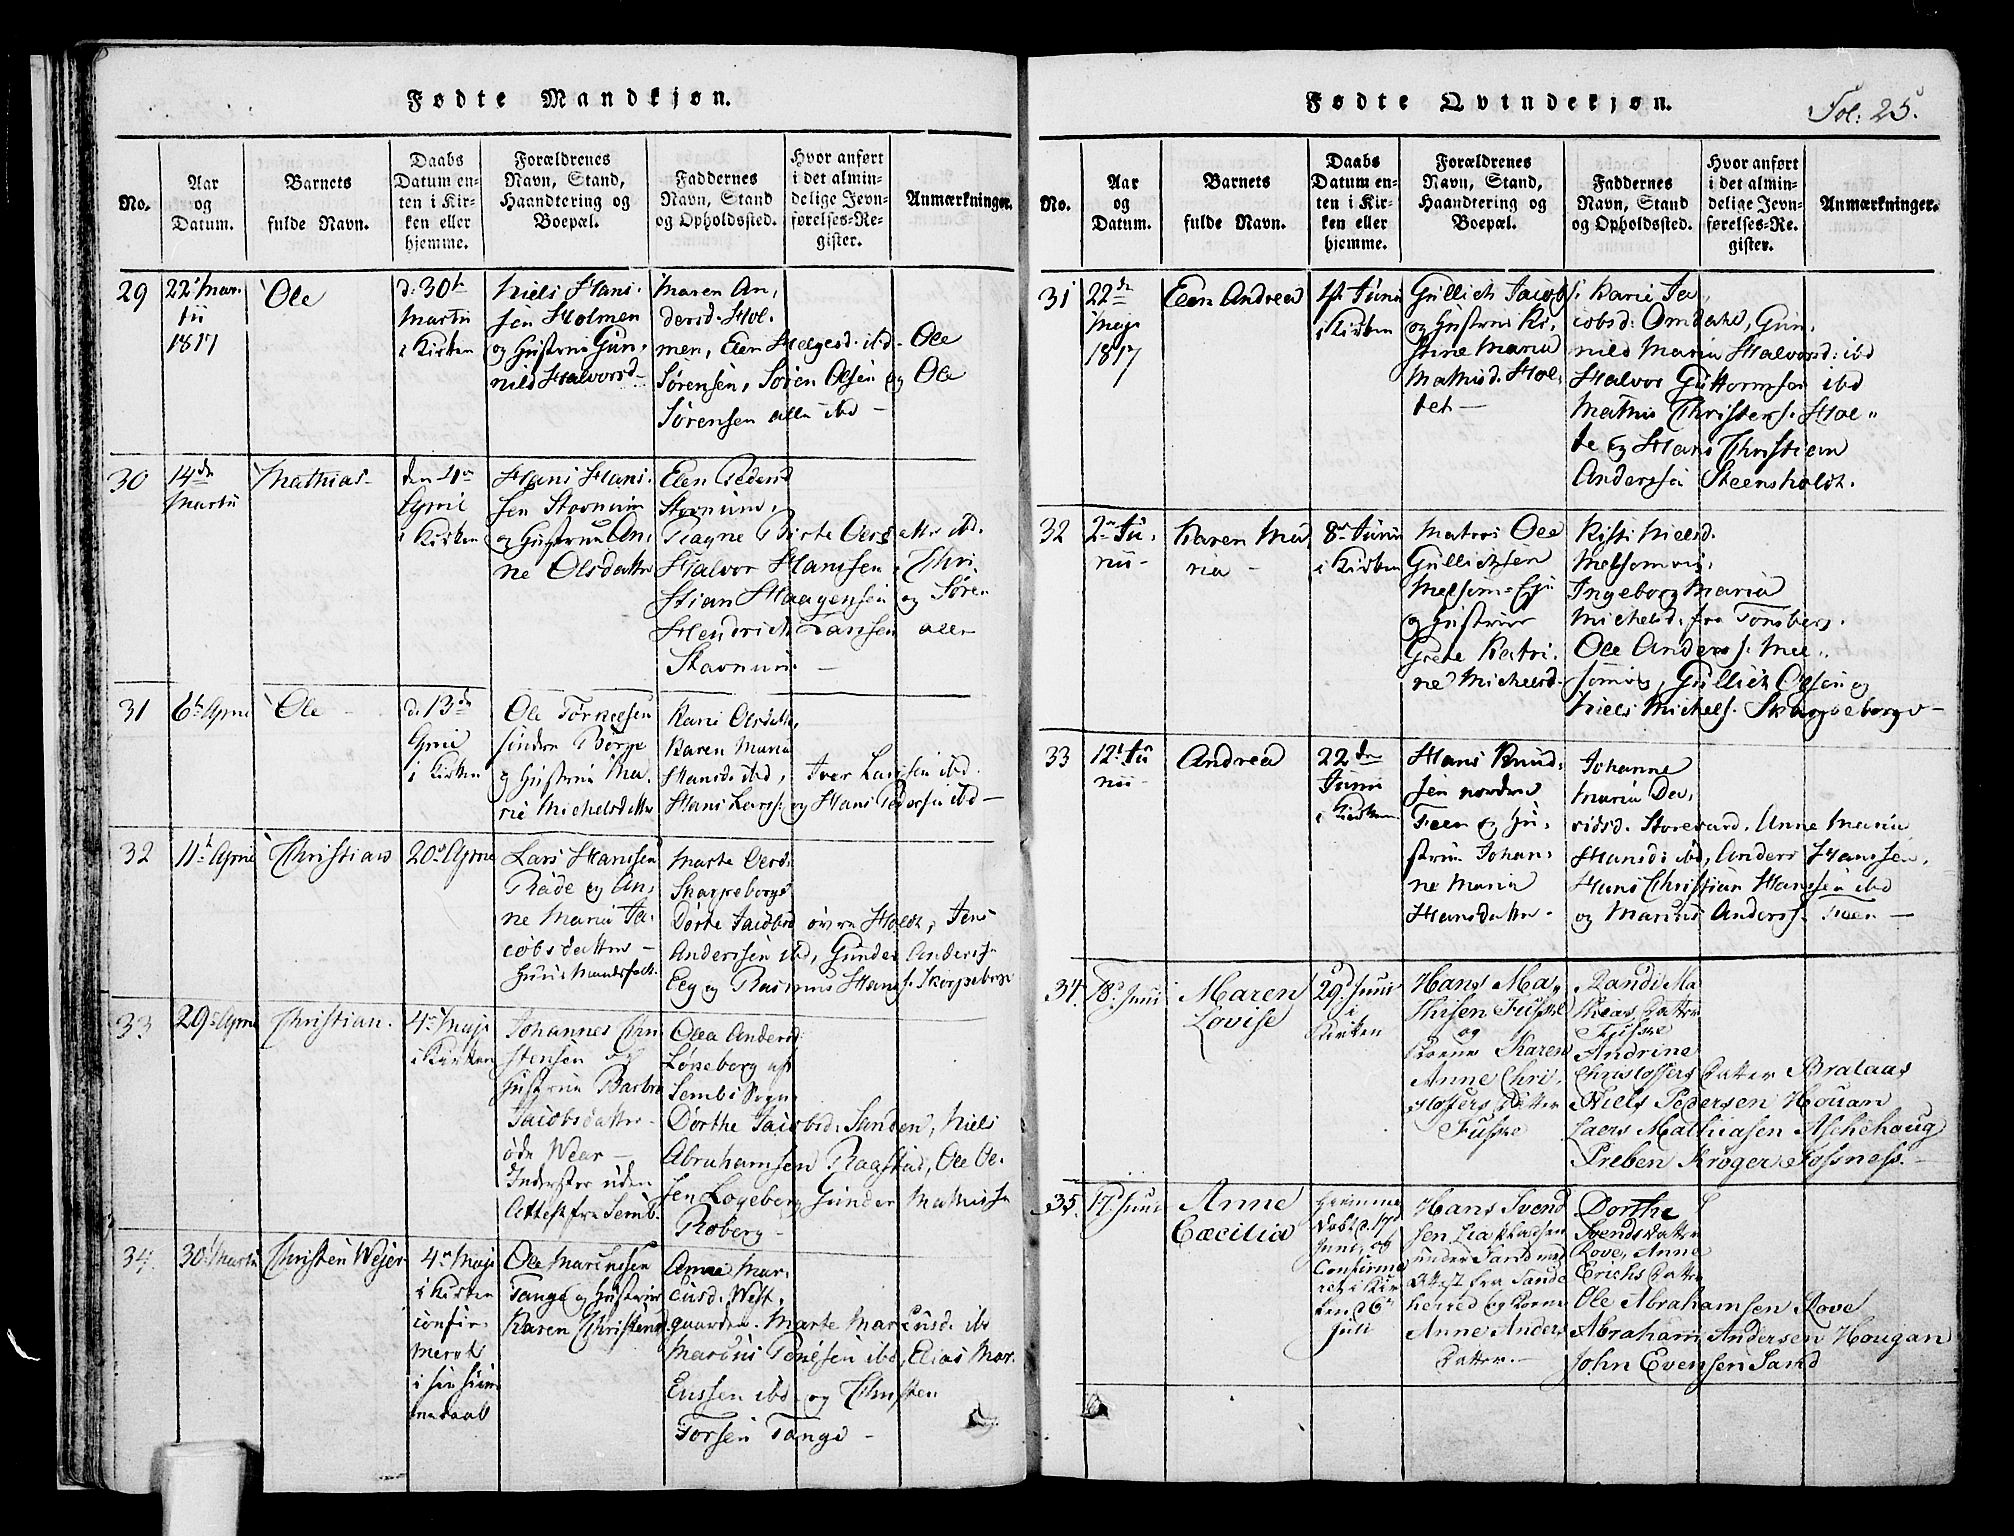 Fødte Mandkjøn.
No.
Aar
og
Datum.
Barnets
fulde Navn.
Daabs
Datum en-
ten i Kir-
ken eller
hjemme.
Forældrenes
Navn, Stand,
Haandtering og
Boepæl.
Faddernes
Navn, Stand
og Opholdssted.
Hvor anført
i det almin-
delige Jevn-
førelses-Re-
gister.
Anmærkninger.
29
22 Mar-
tii
1817
Ole
d: 30te
Martii
i Kirken
Niels Han-
sen Holmen
og Hustrue Gun-
nild Halvorsd
Maren An-
dersd. Hol-
men, Elen Helgesd. ibd. Ole
Sørensen, Søren Olsen og Ole
Sørensen alle ibd
30
14de
Martii
Mathias
den 4de
April
i Kirken
Hans Han-
sen Stavnum
og Hustrue An-
ne Olsdatter
Elen Peders
Stavnum,
Ragne Birte Olds atter ibd.
Halvor Hanssen, Chri
stian Haagensen og Søren
Hendrich Larssen alle
Stavnum.
31
6te April
Ole
d. 13de
April
i Kirken
Ole Tørrisen
søndre Børpe
og Hustrue Ma-
rie Michelsdatter
Kari Olsdatter,
Karen Maria
Hansd. ibd, Iver Larssen ibd.
Hans Larss: og Hans Pedersen ibd
32
11te April
Christian
20de April
Lars Hanssen
Røde og An-
ne Maria Ja-
cobsdatter
Huus Mandsfolk
Marte Olsd.
Skarpeborge
Dorte Jacobsd øvre Holdt, Jens
Anderssen ibd, Gunder Anderss
Eeg og Rasmus Hanss. Skorpeborge
33
29de April
Christian
4de Maji
i Kirken
Johannes Chri
stensen og
Hustrue Barbra
Jacobsdatter
øde Wear
Inderster uden
Attest fra Semb.
Olea Andersd
Løneborg af
Sembs Sogn
Dorthe Jacobsd. Sanden, Niels
Abrahamsen Ragstad, Ole Ol-
sen Logeberg Gunder Mathissen
Roberg
34.
30te Martii
Christen Wejer
4de Maji
i Kirken
confir-
meret
i sin Hiem-
medaab
Ole Marcussen
Tange og Hustrue
Karen Christensd
Anne Mar-
cusd. West-
gaarden. Marte Marcusd. ibd
Marcus Tønnesen ibd, Elias Mar-
cussen ibd og Christen
Torsen Tange
Fødte Qvindekjøn.
Fol: 25.
No.
Aar
og
Datum.
Barnets
fulde Navn.
Daabs
Datum en-
ten i Kir-
ken eller
hjemme.
Forældrenes
Navn, Stand,
Haandtering og
Boepæl.
Faddernes
Navn, Stand
og Opholdssted.
Hvor anført
i det almin-
delige Jevn-
førelses-Re-
gister.
Anmærkninger.
31
22de
Maji
1817
Elen Andrea
1ste Junii
i Kirken
Gullich Jacobs:
og Hustrue Ki-
stine Maria
Mathisd. Hol-
tet
Karie Ja-
cobsd: Omdahl, Gun-
nild Maria Halvorsd: ibd
Halvor Guttormsen ibd
Mathis Christens. Hol-
te og Hans Christian
Anderssen Steensholdt.
32
2de Ju-
nii
Karen Ma-
ria
8de Junii
i Kirken
Matros Ole
Gullichsen
Melsom-Eje
og Hustrue
Grete Katri-
ne Michelsd.
Kisti Nielsd.
Melsomvig,
Ingeborg Maria
Michelsd. fra Tønsberg.
Ole Anderss. Mel-
somvig, Gullich Olsen og
Niels Michels. Skarpeborge
33
12te Ju
nii
Andrea
22de
Junii
i Kirken
Hans Knud-
sen nordre
Feen og Hu-
strue Johan-
ne Maria
Hansdatter
Johanne
Maria Da-
vidsd. Storevard, Anne Maria
Hansd: ibd, Anders Hanssen,
Hans Christian Hanssen ibd
og Marius Anderss. Feen
34.
18d Juni
Maren
Lovise
29d Juni
i
Kirken
Hans Ma-
thisen Fuske
og
Kone Karen
Anne Chri-
stoffers Datter
Fuske
Randi Ma
thias Datter
Fuske
Andrine
Christoffers Datter Bralaas
Niels Pedersen Houan
Laers Mathiasen Aschehoug
Preben Krøger Fossness.
35.
17 Juni
Anne
Cæcilia
Hiemme
Døbt d. 17d
Juni, og
Confirme
ret i Kir
ken 6te
Juli
Hans Svend
sen
under Sand med
Attest fra Sande
herred og Kone
Anne Anders
Datter.
Dorthe
Svends Datter
Rove, Anne
Erichs Datter
Ole Abrahamsen Rove
Abraham Andersen Hougan
John Evensen Sand